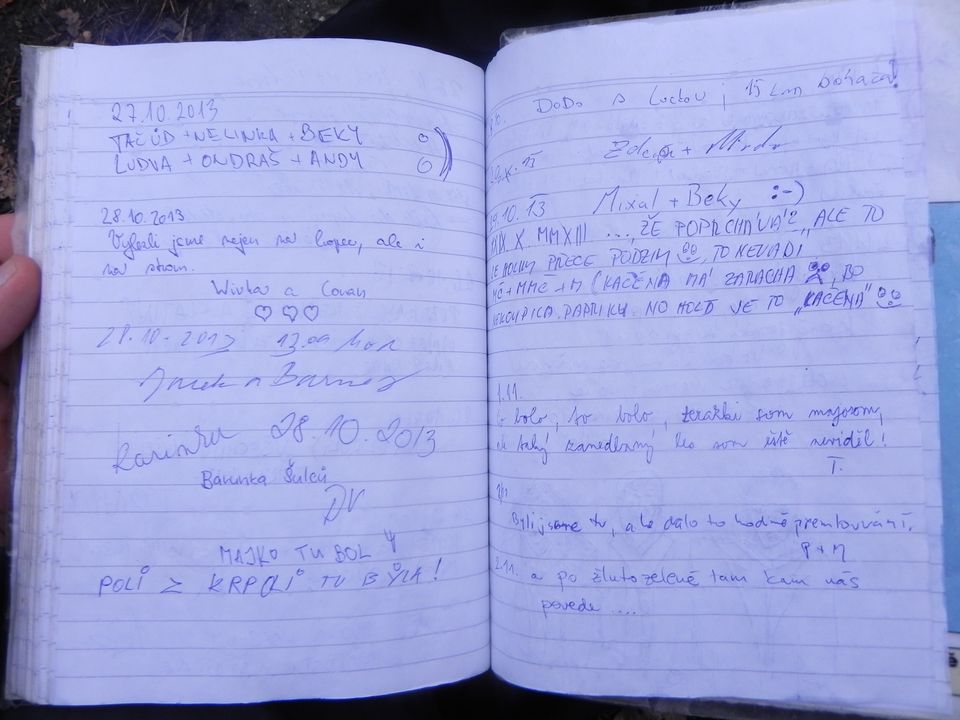 27.10.2013
TAČŮD + NELINKA + BEKY
LUDVA + ONDRAŠ + ANDY
28.10.2013
Vylezli jsme nejen na kopec, ale i
na strom.
a
28.10.2013 13.09
28.10.2013
Barunka Šulců
MAJKO TU BOL
POLI Z KRPOLI TU BYLA!
DODO a Luckou, 15 km boháča!
Zdeněk +
29.10.13 Mixal + Beky :-)
XXIX X MMXIII ..., ŽE POPRCHÁVÁ? "ALE TO
JE HOLKY PŘECE PODZIM, TO NEVADÍ
MČ + MMC + M (KAČENA MÁ ZARACHA, BO
NEKOUPILA PAPRIKU. NO HOLT JE TO „KAČENA"
1.11.
Čo bolo, to bolo, terazki som majorom,
ale taký zanedbaný les som ešte neviděl!
T.
Byli jsme tu, a ale dalo to hodně přemlouvání.
P + M
2.11. a po žlutozelené tam kam nás
povede ....